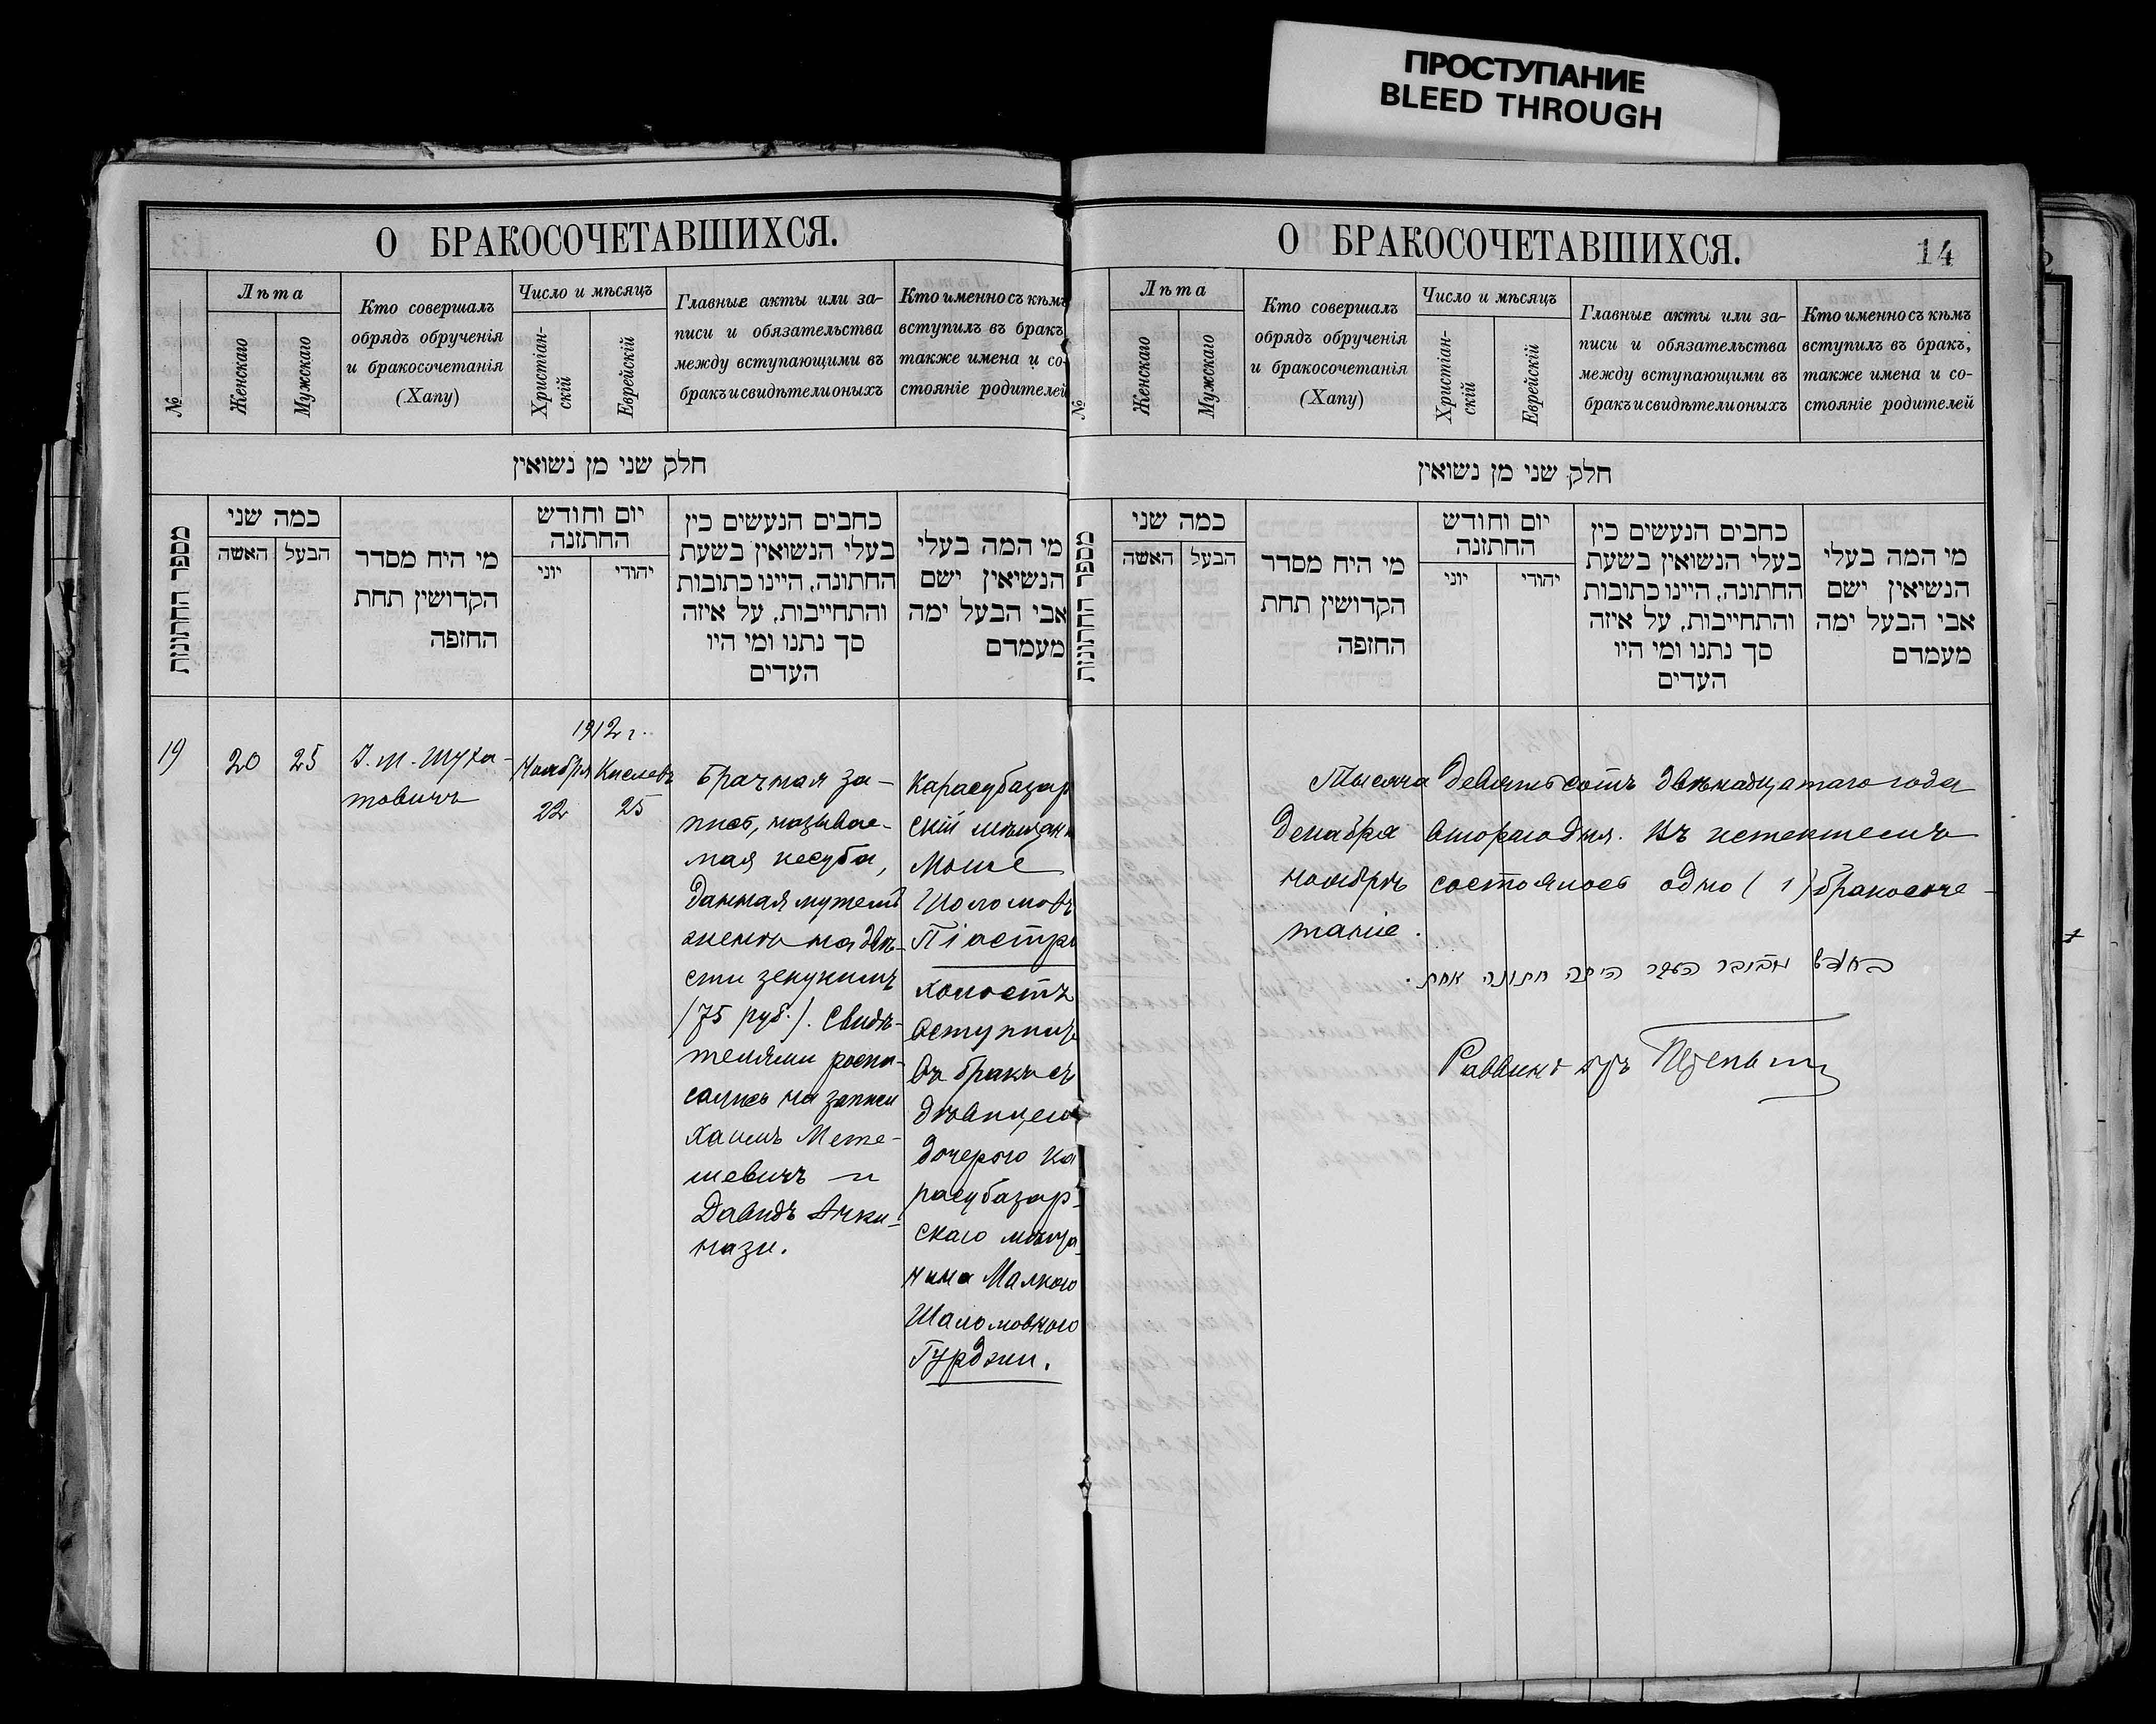 ПРОСТУПАНИЕ
BLEED THROUGH
О БРАКОСОЧЕТАВШИХСЯ.
№
Лѣта
Женскаго
Мужскаго
Кто совершалъ
обрядъ обрученія
и бракосочетанія
(Хапу)
Число и мѣсяцъ
Христіан-
скій
Еврейскій
Главные акты или за-
писи и обязательства
между вступающими въ
бракъ и свидѣтели оныхъ
Кто именно съ кѣмъ
вступилъ въ бракъ,
также имена и со-
стояніе родителей
חלק שני מן נשואין
מספר החתונות
כמה שני
האשה
הבעל
מי היח מסדר
הקדושין תחת
החזפה
יום וחודש
החתזנה
יוני
יהודי
כחבים הנעשים כין
בעלי הנשואין בשעת
החתונה, היינו כתובות
והתחייבות, על איזה
סך נתנו ומי היו
העדים
מי המה בעלי
הנשיאין ישם
אבי הבעל ימה
מעמדם
19
20
25
I. М. Шуха-
товичъ
1912 г.
Ноября
22
Кислевъ
25
Брачная за-
пись, называе-
мая кесуба,
данная мужемъ
женѣ на двѣ-
сти зекукимъ
(75 руб.). Свидѣ-
телями роспи-
сались на записи
Хаимъ Мете-
шевичъ и
Давидъ Ачки-
нази.
Карасубазар
скій мѣщан
Моше
Шоломовъ
Піастръ
холостъ
вступилъ
въ бракъ съ
дѣвицею
дочерью Ка
расубазар-
скаго мѣща-
нина Малкою
Шаломовною
Гурджи.
О БРАКОСОЧЕТАВШИХСЯ.
14
№
Лѣта
Женскаго
Мужскаго
Кто совершалъ
обрядъ обрученія
и бракосочетанія
(Хапу)
Число и мѣсяцъ
Христіан-
скій
Еврейскій
Главные акты или за-
писи и обязательства
между вступающими въ
бракъ и свидѣтели оныхъ
Кто именно съ кѣмъ
вступилъ въ бракъ,
также имена и со-
стояніе родителей
חלק שני מן נשואין
מספר החתונות
כמה שני
האשה
הבעל
מי היח מסדר
הקדושין תחת
החזפה
יום וחודש
החתזנה
יוני
יהודי
כחבים הנעשים כין
בעלי הנשואין בשעת
החתונה, היינו כתובות
והתחייבות, על איזה
סך נתנו ומי היו
העדים
מי המה בעלי
הנשיאין ישם
אבי הבעל ימה
מעמדם
Тысяча девятьсотъ двѣнадцатаго года
декабря второго дня. Въ истекшемъ
ноябрѣ состоялось одно (1) бракосоче-
таніе.
בחדש נאבובר העבר היתה חתונה אחת.
Раввинъ